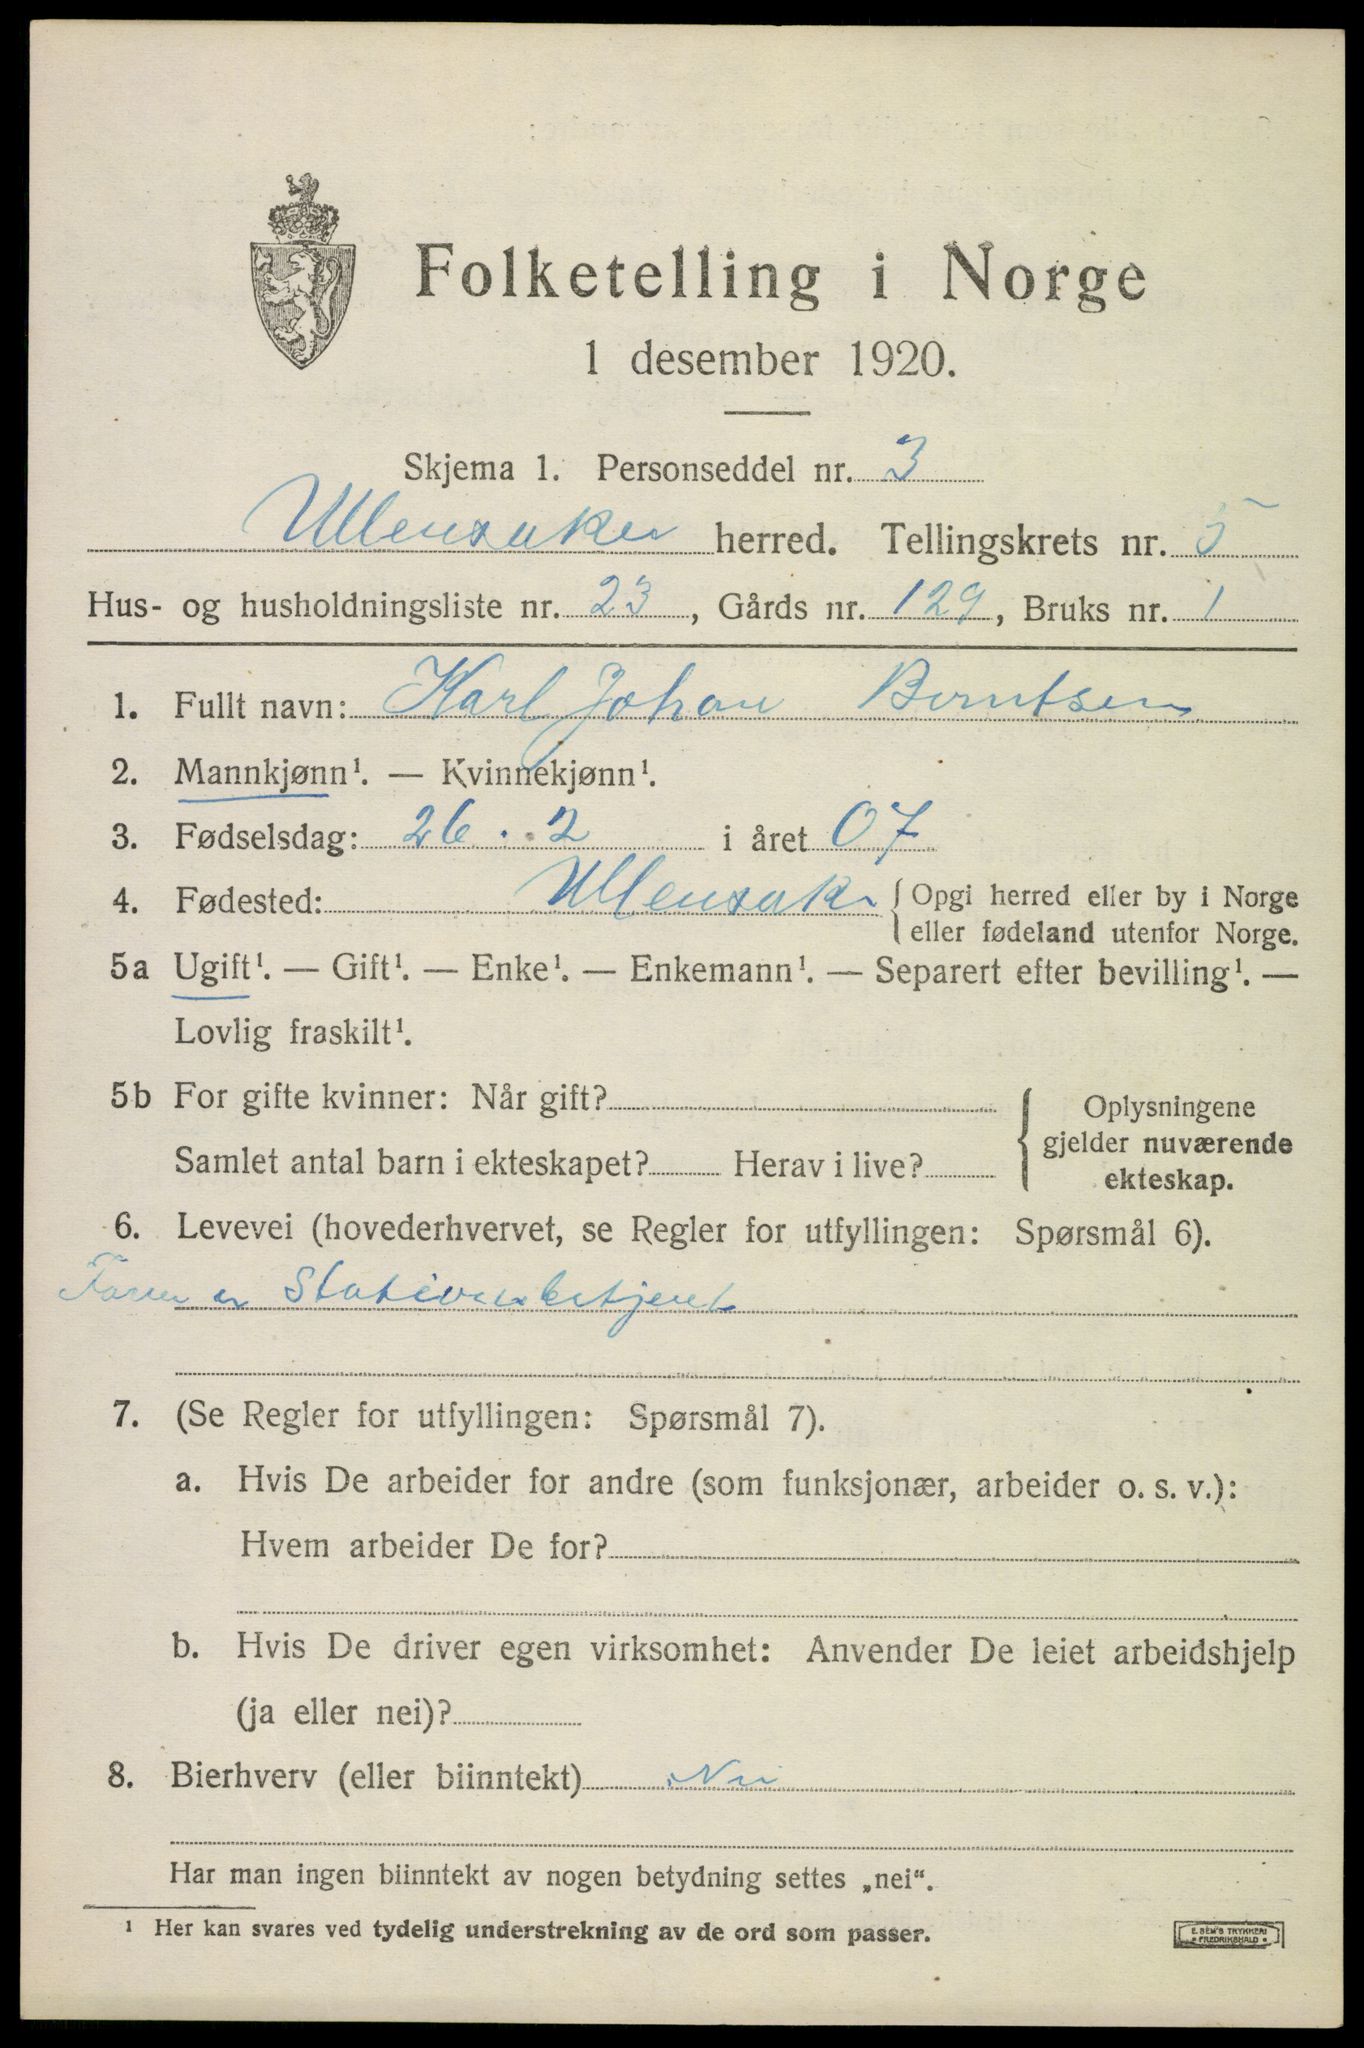 Folketelling i Norge
1 desember 1920.
Skjema 1. Personseddel nr. 3
Ullensaker herred. Tellingskrets nr. 5
Hus- og husholdningsliste nr. 23, Gårds nr. 129, Bruks nr. 1
1. Fullt navn: Karl Johan Berntsen
2. Mannkjønn¹. — Kvinnekjønn¹.
3. Fødselsdag: 26. 2 i året 07
4. Fødested: Ullensaker { Opgi herred eller by i Norge
eller fødeland utenfor Norge.
5a Ugift¹. — Gift¹. — Enke¹. — Enkemann¹. — Separert efter bevilling¹. —
Lovlig fraskilt¹.
5b For gifte kvinner: Når gift?
Samlet antal barn i ekteskapet? Herav i live?
{ Oplysningene
gjelder nuværende
ekteskap.
6. Levevei (hovederhvervet, se Regler for utfyllingen: Spørsmål 6).
Faren er Stationsbetjent
7. (Se Regler for utfyllingen: Spørsmål 7).
a. Hvis De arbeider for andre (som funksjonær, arbeider o. s. v.):
Hvem arbeider De for?
b. Hvis De driver egen virksomhet: Anvender De leiet arbeidshjelp
(ja eller nei)?
8. Bierhverv (eller biinntekt) Nei
Har man ingen biinntekt av nogen betydning settes „nei“.
¹ Her kan svares ved tydelig understrekning av de ord som passer.
E. SEM'S TRYKKERI
FREDRIKSHALD